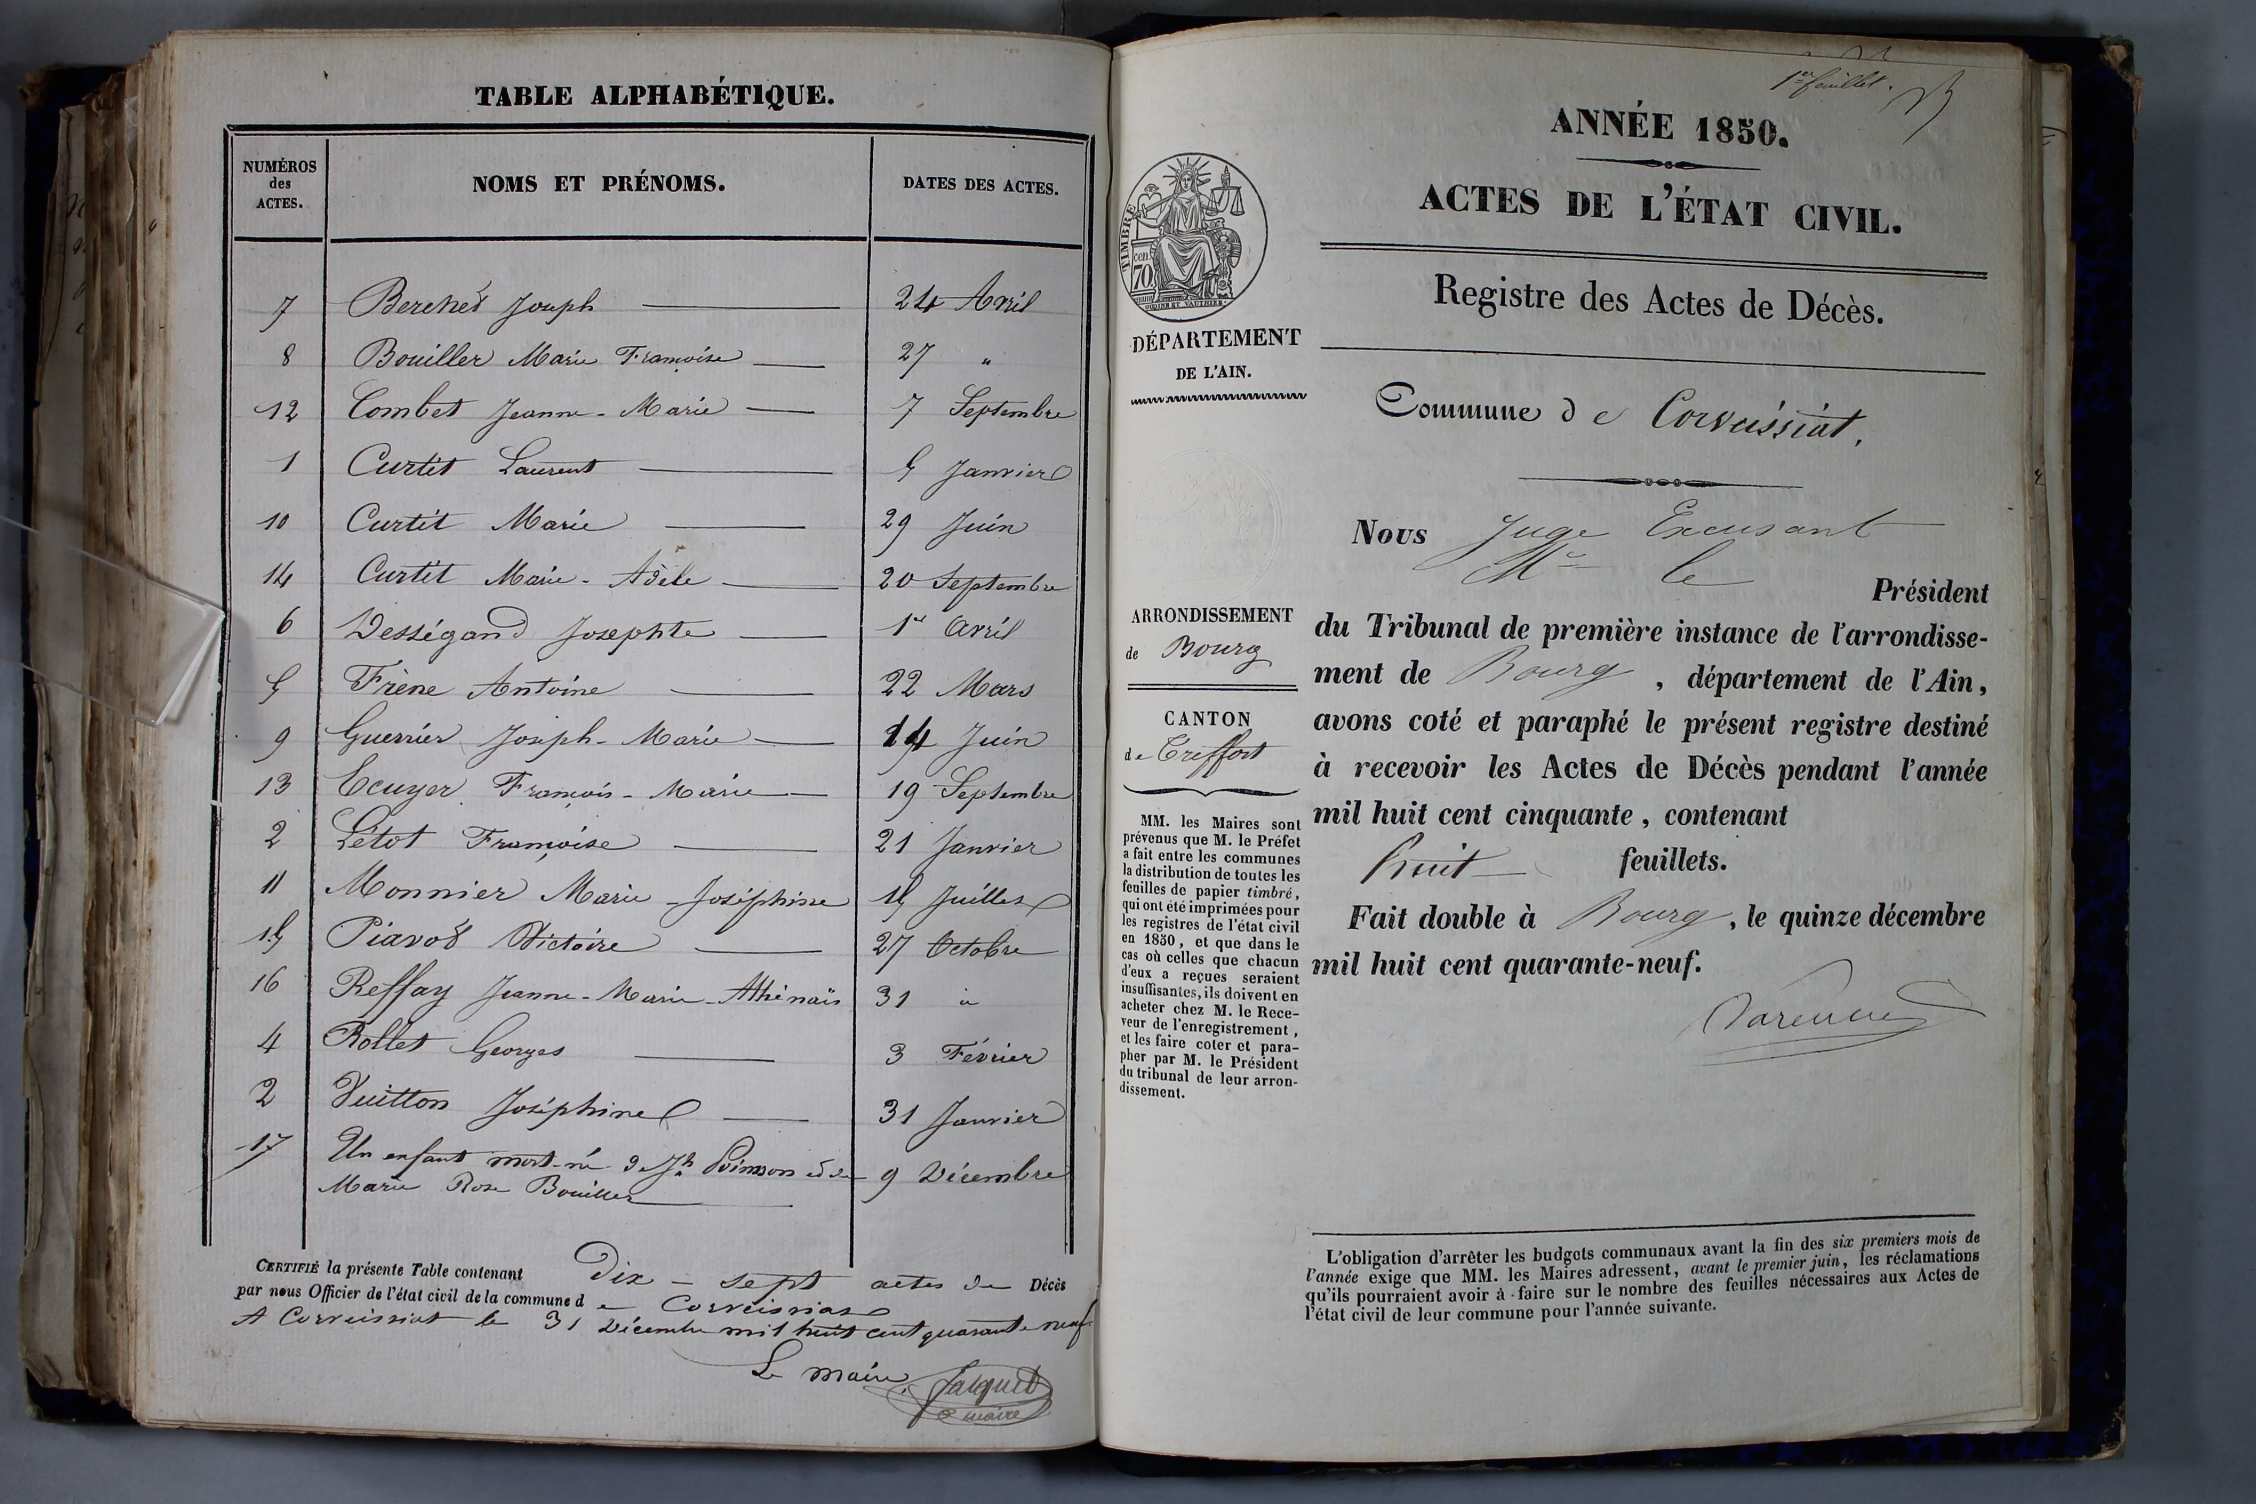 TABLE ALPHABÉTIQUE.
NUMÉROS des ACTES. NOMS ET PRÉNOMS. DATES DES ACTES.
7 Berchet Joseph 24 Avril
8 Bouiller Marie Françoise 27 "
12 Combet Jeanne-Marie 7 Septembre
1 Curtit Laurent 5 Janvier
10 Curtit Marie 29 Juin
14 Curtit Marie-Adèle 20 Septembre
6 Dességand Josephte 1er Avril
5 Frène Antoine 22 Mars
9 Guerrier Joseph-Marie 14 Juin
13 Ecuyer François-Marie 19 Septembre
2 Létot Françoise 21 Janvier
11 Monnier Marie-Joséphine 15 Juillet
15 Piavot Victoire 27 Octobre
16 Reffay Jeanne-Marie-Athénaïs 31 "
4 Rollet Georges 3 Février
2 Vuitton Joséphine 31 Janvier
17 Un enfant mort-né de Jh Poinson et de 9 Décembre
Marie Rose Bouiller
CERTIFIÉ la présente Table contenant Dix-sept actes de Décès
par nous Officier de l'état civil de la commune de Corveissiat
A Corveissiat le 31 Décembre mil huit cent quarante neuf
Le maire,
Jacquet
maire
1er feuillet.
ANNÉE 1850.
ACTES DE L'ÉTAT CIVIL.
Registre des Actes de Décès.
TIMBRE
70 cent
DÉPARTEMENT
DE L'AIN.
Commune de Corveissiat.
Nous Juge Excusant
Mr le Président
du Tribunal de première instance de l'arrondisse-
ment de Bourg, département de l'Ain,
avons coté et paraphé le présent registre destiné
à recevoir les Actes de Décès pendant l'année
mil huit cent cinquante, contenant
huit feuillets.
Fait double à Bourg, le quinze décembre
mil huit cent quarante-neuf.
Varenne
ARRONDISSEMENT
de Bourg
CANTON
de Treffort
MM. les Maires sont
prévenus que M. le Préfet
a fait entre les communes
la distribution de toutes les
feuilles de papier timbré,
qui ont été imprimées pour
les registres de l'état civil
en 1850, et que dans le
cas où celles que chacun
d'eux a reçues seraient
insuffisantes, ils doivent en
acheter chez M. le Rece-
veur de l'enregistrement,
et les faire coter et para-
pher par M. le Président
du tribunal de leur arron-
dissement.
L'obligation d'arrêter les budgets communaux avant la fin des six premiers mois de
l'année exige que MM. les Maires adressent, avant le premier juin, les réclamations
qu'ils pourraient avoir à faire sur le nombre des feuilles nécessaires aux Actes de
l'état civil de leur commune pour l'année suivante.